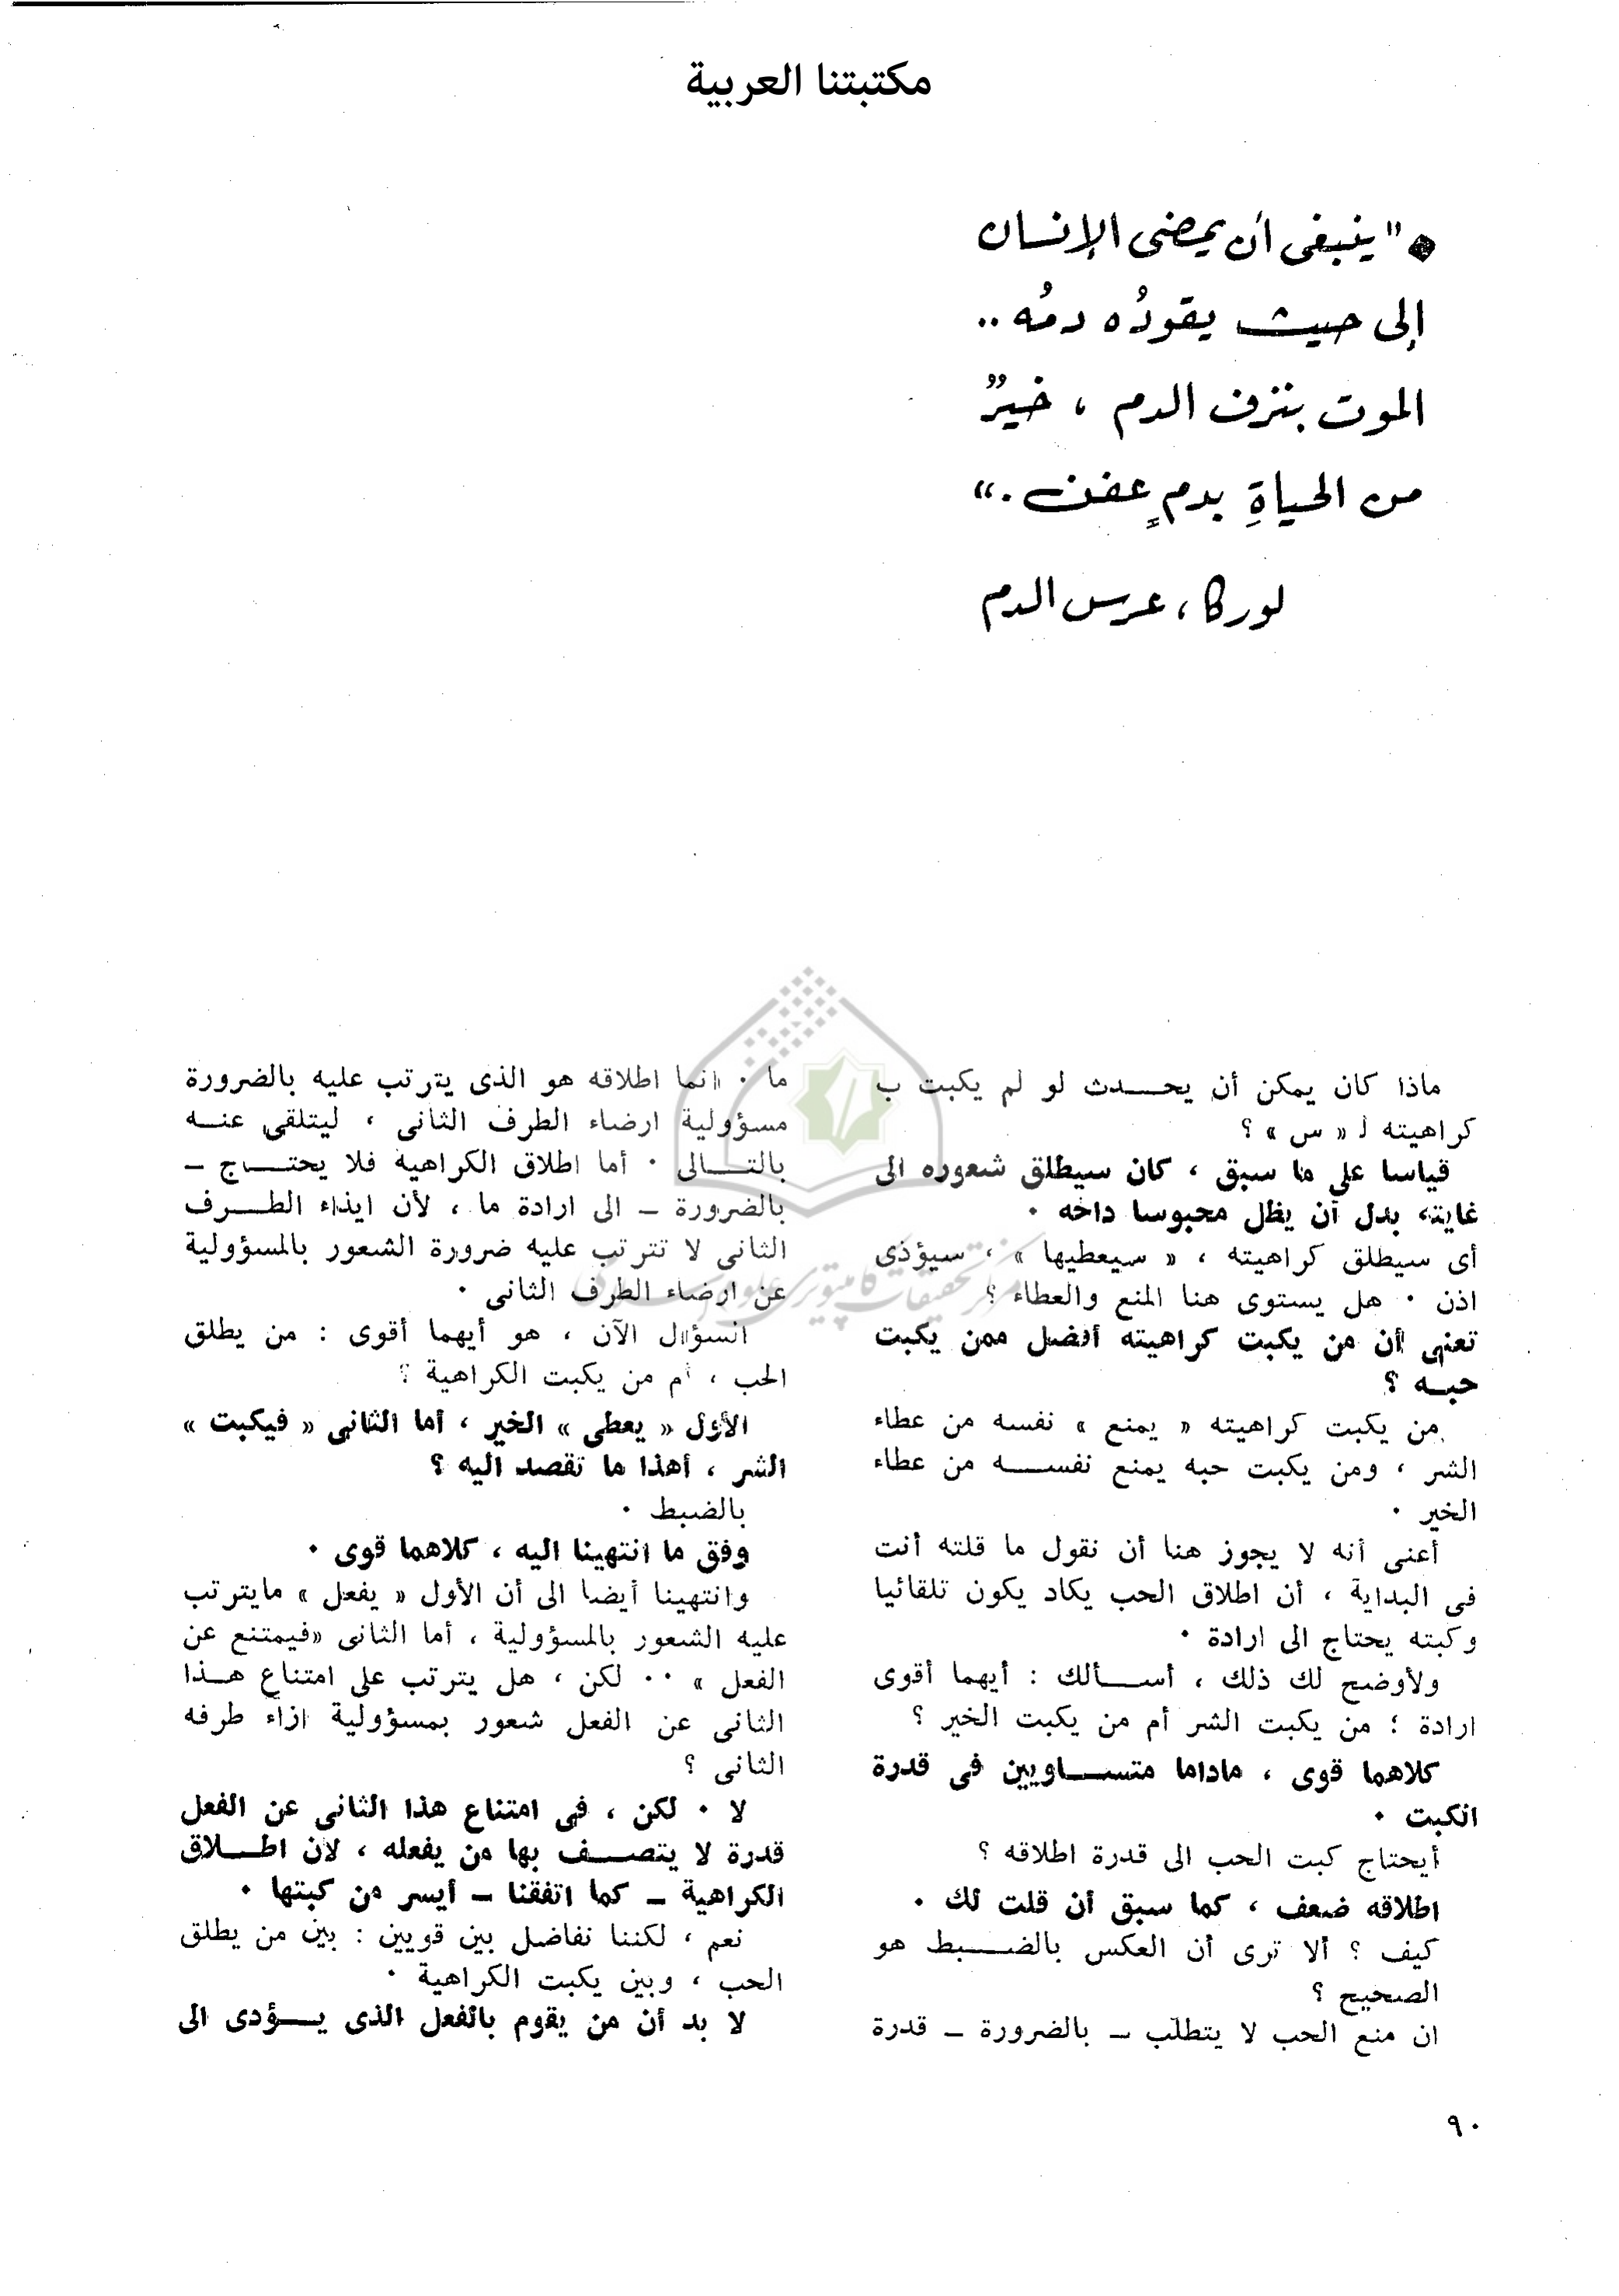 مكتبتنا العربية
"ينبغى أن يمضى الإنسان
إلى حيث يقودُه دمُه ..
الموت بنزف الدم ، خيرٌ
من الحياةِ بدمٍ عفن ."
لوركا ، عرس الدم
ماذا كان يمكن أن يحــدث لو لم يكبت ب
كراهيته لـ « س » ؟
قياسا على ما سبق ، كان سيطلق شعوره الى
غايته، بدل أن يظل محبوسا داخه ٠
أى سيطلق كراهيته ، « سيعطيها » ، سيؤذى
اذن ٠ هل يستوى هنا المنع والعطاء ؟
تعنى أن من يكبت كراهيته أفضل ممن يكبت
حبـه ؟
من يكبت كراهيته « يمنع » نفسه من عطاء
الشر ، ومن يكبت حبه يمنع نفســه من عطاء
الخير ٠
أعنى أنه لا يجوز هنا أن نقول ما قلته أنت
فى البداية ، أن اطلاق الحب يكاد يكون تلقائيا
وكبته يحتاج الى ارادة ٠
ولأوضح لك ذلك ، أســألك : أيهما أقوى
ارادة ؛ من يكبت الشر أم من يكبت الخير ؟
كلاهما قوى ، ماداما متســاويين فى قدرة
الكبت ٠
أيحتاج كبت الحب الى قدرة اطلاقه ؟
اطلاقه ضعف ، كما سبق أن قلت لك ٠
كيف ؟ ألا ترى أن العكس بالضــبط هو
الصحيح ؟
ان منع الحب لا يتطلب – بالضرورة – قدرة
ما ٠ انما اطلاقه هو الذى يترتب عليه بالضرورة
مسؤولية ارضاء الطرف الثانى ، ليتلقى عنـه
بالتــالى ٠ أما اطلاق الكراهية فلا يحتــاج –
بالضرورة – الى ارادة ما ، لأن ايذاء الطــرف
الثانى لا تترتب عليه ضرورة الشعور بالمسؤولية
عن ارضاء الطرف الثانى ٠
السؤال الآن ، هو أيهما أقوى : من يطلق
الحب ، أم من يكبت الكراهية ؟
الأول « يعطى » الخير ، أما الثانى « فيكبت »
الشر ، أهذا ما تقصد اليه ؟
بالضبط ٠
وفق ما انتهينا اليه ، كلاهما قوى ٠
وانتهينا أيضا الى أن الأول « يفعل » مايترتب
عليه الشعور بالمسؤولية ، أما الثانى «فيمتنع عن
الفعل » ٠٠ لكن ، هل يترتب على امتناع هـذا
الثانى عن الفعل شعور بمسؤولية ازاء طرفه
الثانى ؟
لا ٠ لكن ، فى امتناع هذا الثانى عن الفعل
قدرة لا يتصــف بها من يفعله ، لأن اطــلاق
الكراهية – كما اتفقنا – أيسر من كبتها ٠
نعم ، لكننا نفاضل بين قويين : بين من يطلق
الحب ، وبين يكبت الكراهية ٠
لا بد أن من يقوم بالفعل الذى يــؤدى الى
٩٠